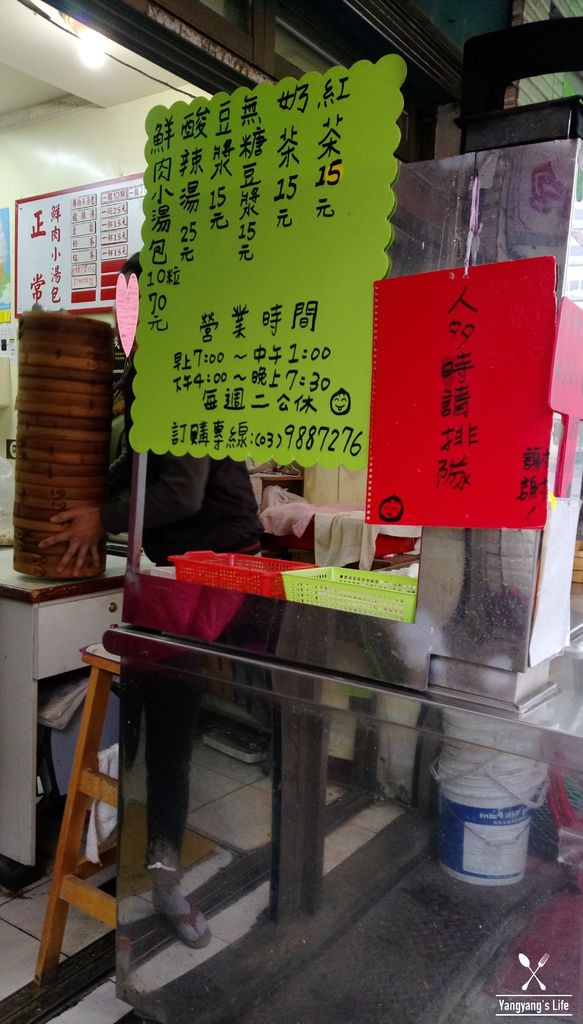 紅茶15元
奶茶15元
無糖豆漿15元
豆漿15元
酸辣湯25元
鮮肉小湯包10粒70元
營業時間
早上7:00～中午1:00
下午4:00～晚上7:30
每週二公休
訂購專線:(03)9887276
人多時請排隊
謝謝!
正常
鮮肉小湯包
Yangyang's Life